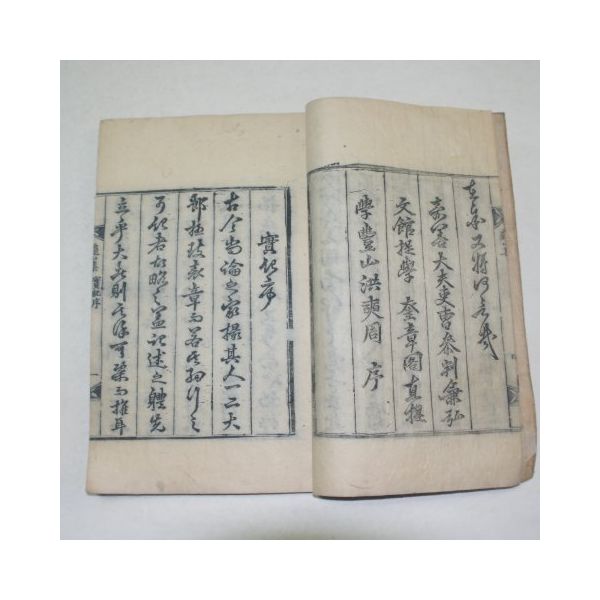 又將何言哉
嘉善大夫吏曹參判兼弘
文館提學 奎章閣直提
學豐山洪奭周 序
實紀序
古今尚論之家撮其人一二大
節極致表章而若其細行之
可紀者故略之蓋記述之體先
立乎大者則其餘可槩而推耳
實紀序